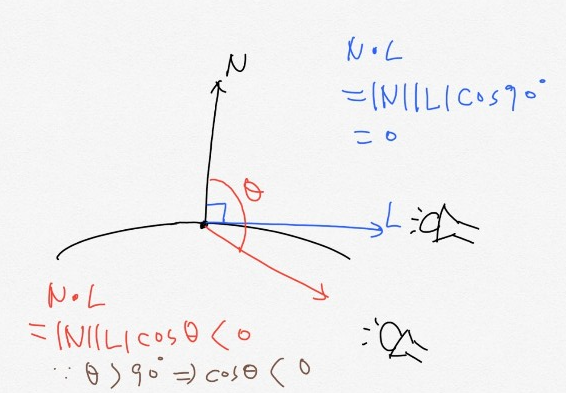 N
N•L
=|N||L|cos90°
=0
θ
L
N•L
=|N||L|cosθ<0
∵θ>90°⇒cosθ<0